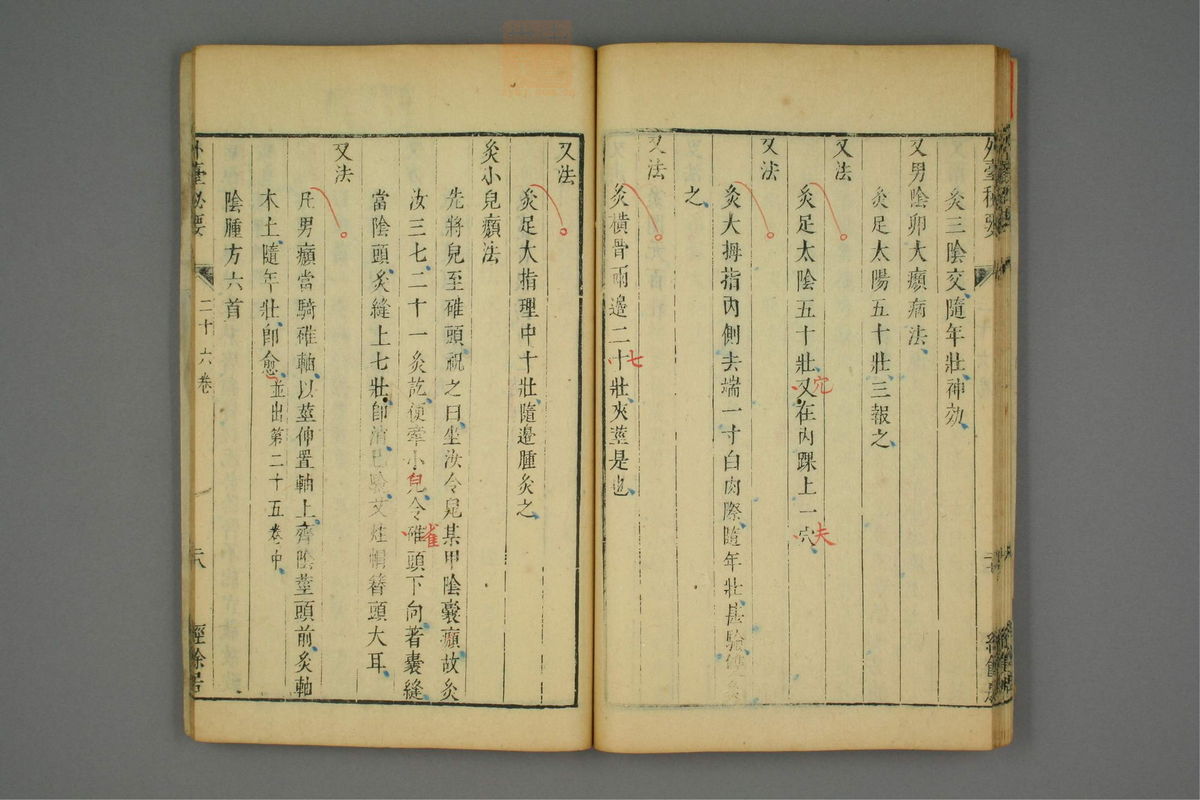 灸三陰交隨年壯神効
又男陰卵大㿗病法
灸足太陽五十壯三報之
又法
灸足太陰五十壯又在內踝上一穴
穴
夫
又法
灸大拇指內側去端一寸白肉際隨年壯甚驗
之
又法
灸橫骨兩邊二十壯夾莖是也
七
又法
灸足大指理中十壯隨邊腫灸之
灸小兒㿗法
先將兒至碓頭祝之曰坐汝令兒某甲陰囊㿗故灸
汝三七二十一灸訖便牽小兒令碓頭下向著囊縫
雀
當陰頭灸縫上七壯即消已驗艾炷帽簪頭大耳
又法
凡男㿗當騎碓軸以莖伸置軸上齊陰莖頭前灸軸
木上隨年壯即愈並出第二十五卷中
陰腫方六首
外臺秘要
二十六卷
二八
經餘居